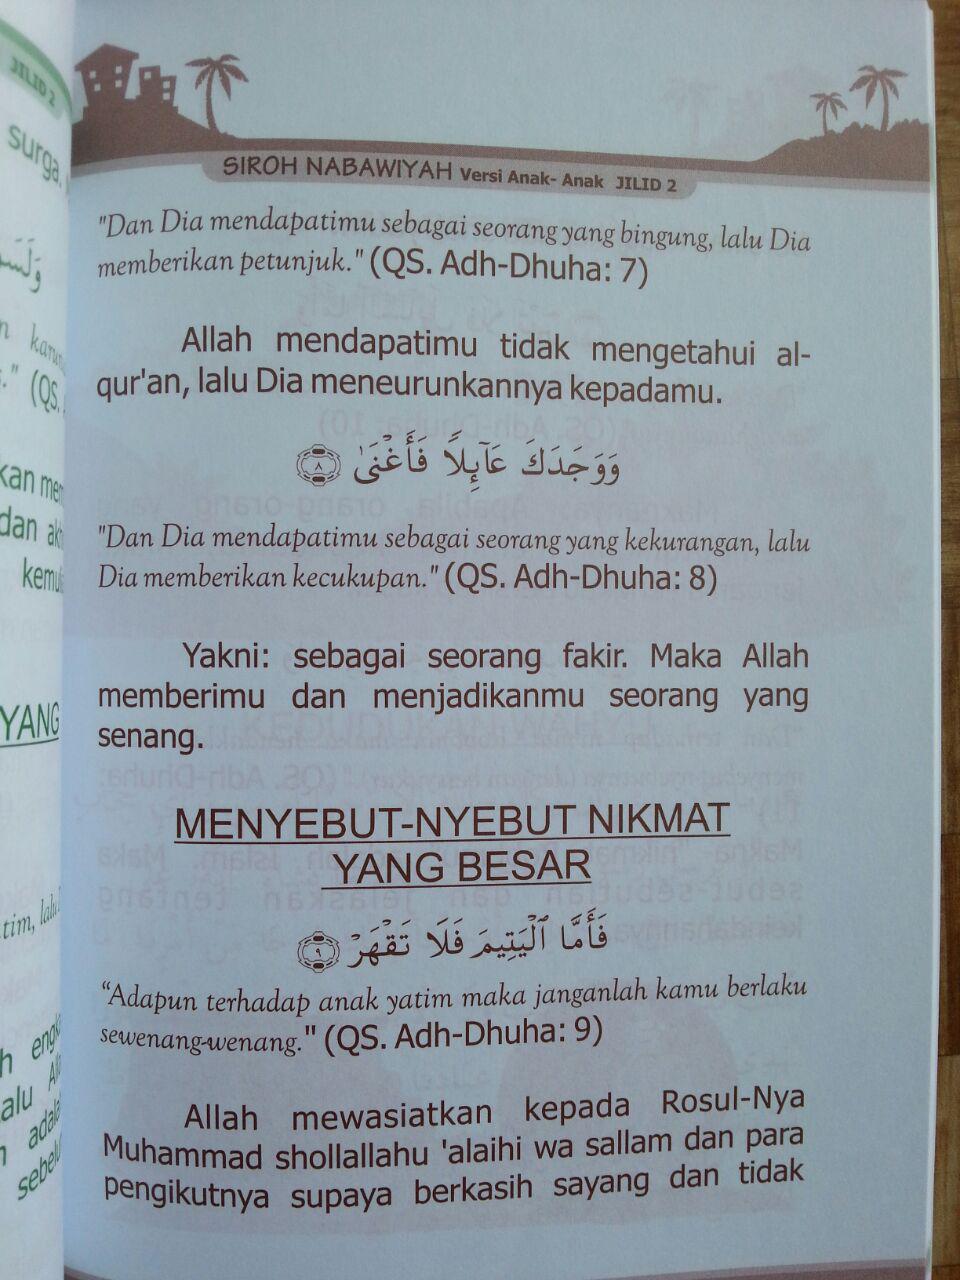 JILID 2
surga,
SIROH NABAWIYAH Versi Anak- Anak JILID 2
"Dan Dia mendapatimu sebagai seorang yang bingung, lalu Dia
memberikan petunjuk." (QS. Adh-Dhuha: 7)
Allah mendapatimu tidak mengetahui al-
qur'an, lalu Dia meneurunkannya kepadamu.
وَوَجَدَكَ عَآئِلًا فَأَغْنَىٰ ٨
"Dan Dia mendapatimu sebagai seorang yang kekurangan, lalu
Dia memberikan kecukupan." (QS. Adh-Dhuha: 8)
Yakni: sebagai seorang fakir. Maka Allah
memberimu dan menjadikanmu seorang yang
senang.
MENYEBUT-NYEBUT NIKMAT
YANG BESAR
فَأَمَّا ٱلْيَتِيمَ فَلَا تَقْهَرْ ٩
“Adapun terhadap anak yatim maka janganlah kamu berlaku
sewenang-wenang." (QS. Adh-Dhuha: 9)
Allah mewasiatkan kepada Rosul-Nya
Muhammad shollallahu 'alaihi wa sallam dan para
pengikutnya supaya berkasih sayang dan tidak